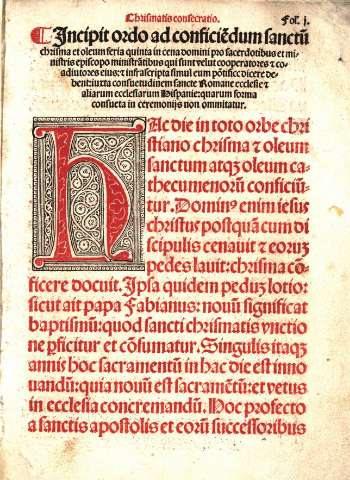 Chrismatis consecratio. Fol. j.
¶Incipit ordo ad conficiēdum sanctū
chrisma et oleum feria quinta in cena domini pro sacerdotibus et mi-
nistris episcopo ministrātibus qui sunt velut cooperatores & co-
adiutores eius: & infrascripta simul cum pōtifice dicere de-
bent: iuxta consuetudinem sancte Romane ecclesie &
aliarum ecclesiarum Hispanie: quarum forma
consueta in ceremonijs non ommitatur.
HAc die in toto orbe chri
stiano chrisma & oleum
sanctum atqȝ oleum ca-
thecumenorū conficiū-
tur. Dominꝰ enim iesus
christus postquā cum di
scipulis cenauit & eorum
pedes lauit: chrisma cō-
ficere docuit. Ipsa quidem pedum lotio:
sicut ait papa Fabianus: nouū significat
baptismū: quod sancti chrismatis vnctio
ne ꝑficitur et cōfumatur. Singulis itaqȝ
annis hoc sacramentū in hac die est inno
uandū: quia nouū est sacramētū: et vetus
in ecclesia concremandū. Hoc profecto
a sanctis apostolis et eorū successoribus